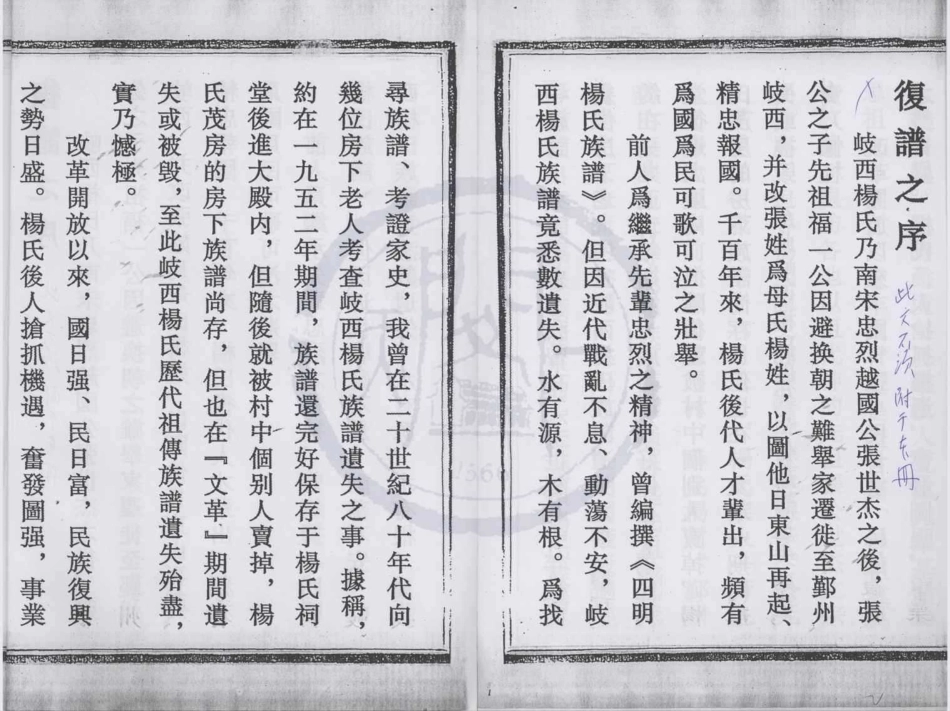 復譜之序
岐西楊氏乃南宋忠烈越國公張世杰之後，張
公之子先祖福一公因避换朝之難舉家遷徙至鄞州
岐西，并改張姓爲母氏楊姓，以圖他日東山再起、
精忠報國。千百年來，楊氏後代人才輩出，頻有
爲國爲民可歌可泣之壯舉。
前人爲繼承先輩忠烈之精神，曾編撰《四明
楊氏族譜》。但因近代戰亂不息、動蕩不安，岐
西楊氏族譜竟悉數遺失。水有源，木有根。爲找
尋族譜、考證家史，我曾在二十世紀八十年代向
幾位房下老人考查岐西楊氏族譜遺失之事。據稱，
約在一九五二年期間，族譜還完好保存于楊氏祠
堂後進大殿内，但隨後就被村中個别人賣掉，楊
氏茂房的房下族譜尚存，但也在『文革』期間遺
失或被毁，至此岐西楊氏歷代祖傳族譜遺失殆盡，
實乃憾極。
改革開放以來，國日强、民日富，民族復興
之勢日盛。楊氏後人搶抓機遇，奮發圖强，事業
此文不須附于古册
1566